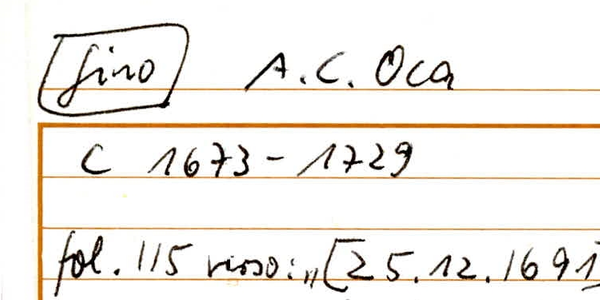 Gino A.C. Oca
C 1673-1729
fol. 115 verso: „[25.12.1691]